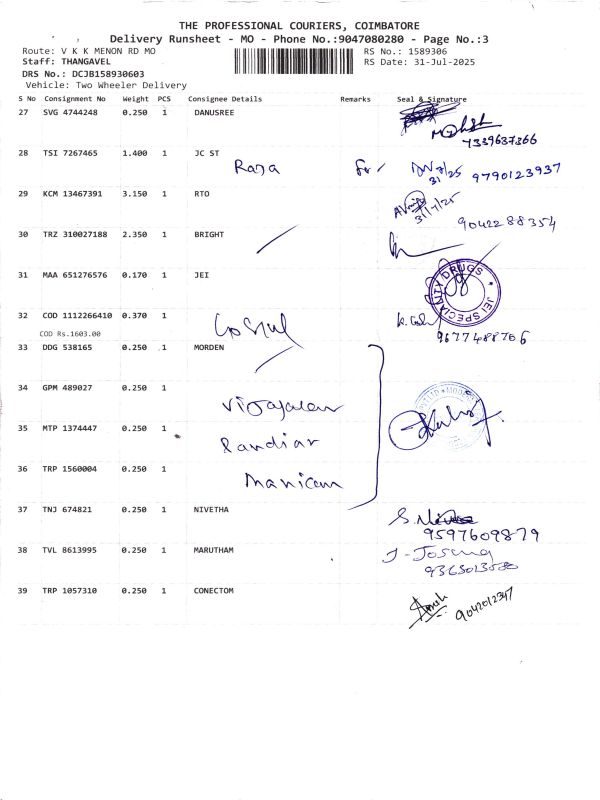 THE PROFESSIONAL COURIERS, COIMBATORE
Delivery Runsheet - MO - Phone No.:9047080280 - Page No.:3
Route: V K K MENON RD MO RS No.: 1589306
Staff: THANGAVEL RS Date: 31-Jul-2025
DRS No.: DCJB158930603
Vehicle: Two Wheeler Delivery
S No Consignment No Weight PCS Consignee Details Remarks Seal & Signature
27 SVG 4744248 0.250 1 DANUSREE
7339637366
28 TSI 7267465 1.400 1 JC ST
Raja for 31/7/25 9790123937
29 KCM 13467391 3.150 1 RTO
31/7/25
9042288354
30 TRZ 310027188 2.350 1 BRIGHT
31 MAA 651276576 0.170 1 JEI
JEI SPECIALITY DRUGS
32 COD 1112266410 0.370 1
COD Rs.1603.00
9677488706
33 DDG 538165 0.250 1 MORDEN
34 GPM 489027 0.250 1
35 MTP 1374447 0.250 1
Pandiar
36 TRP 1560004 0.250 1
Manicam
37 TNJ 674821 0.250 1 NIVETHA
9597609879
38 TVL 8613995 0.250 1 MARUTHAM
39 TRP 1057310 0.250 1 CONECTOM
9042012347